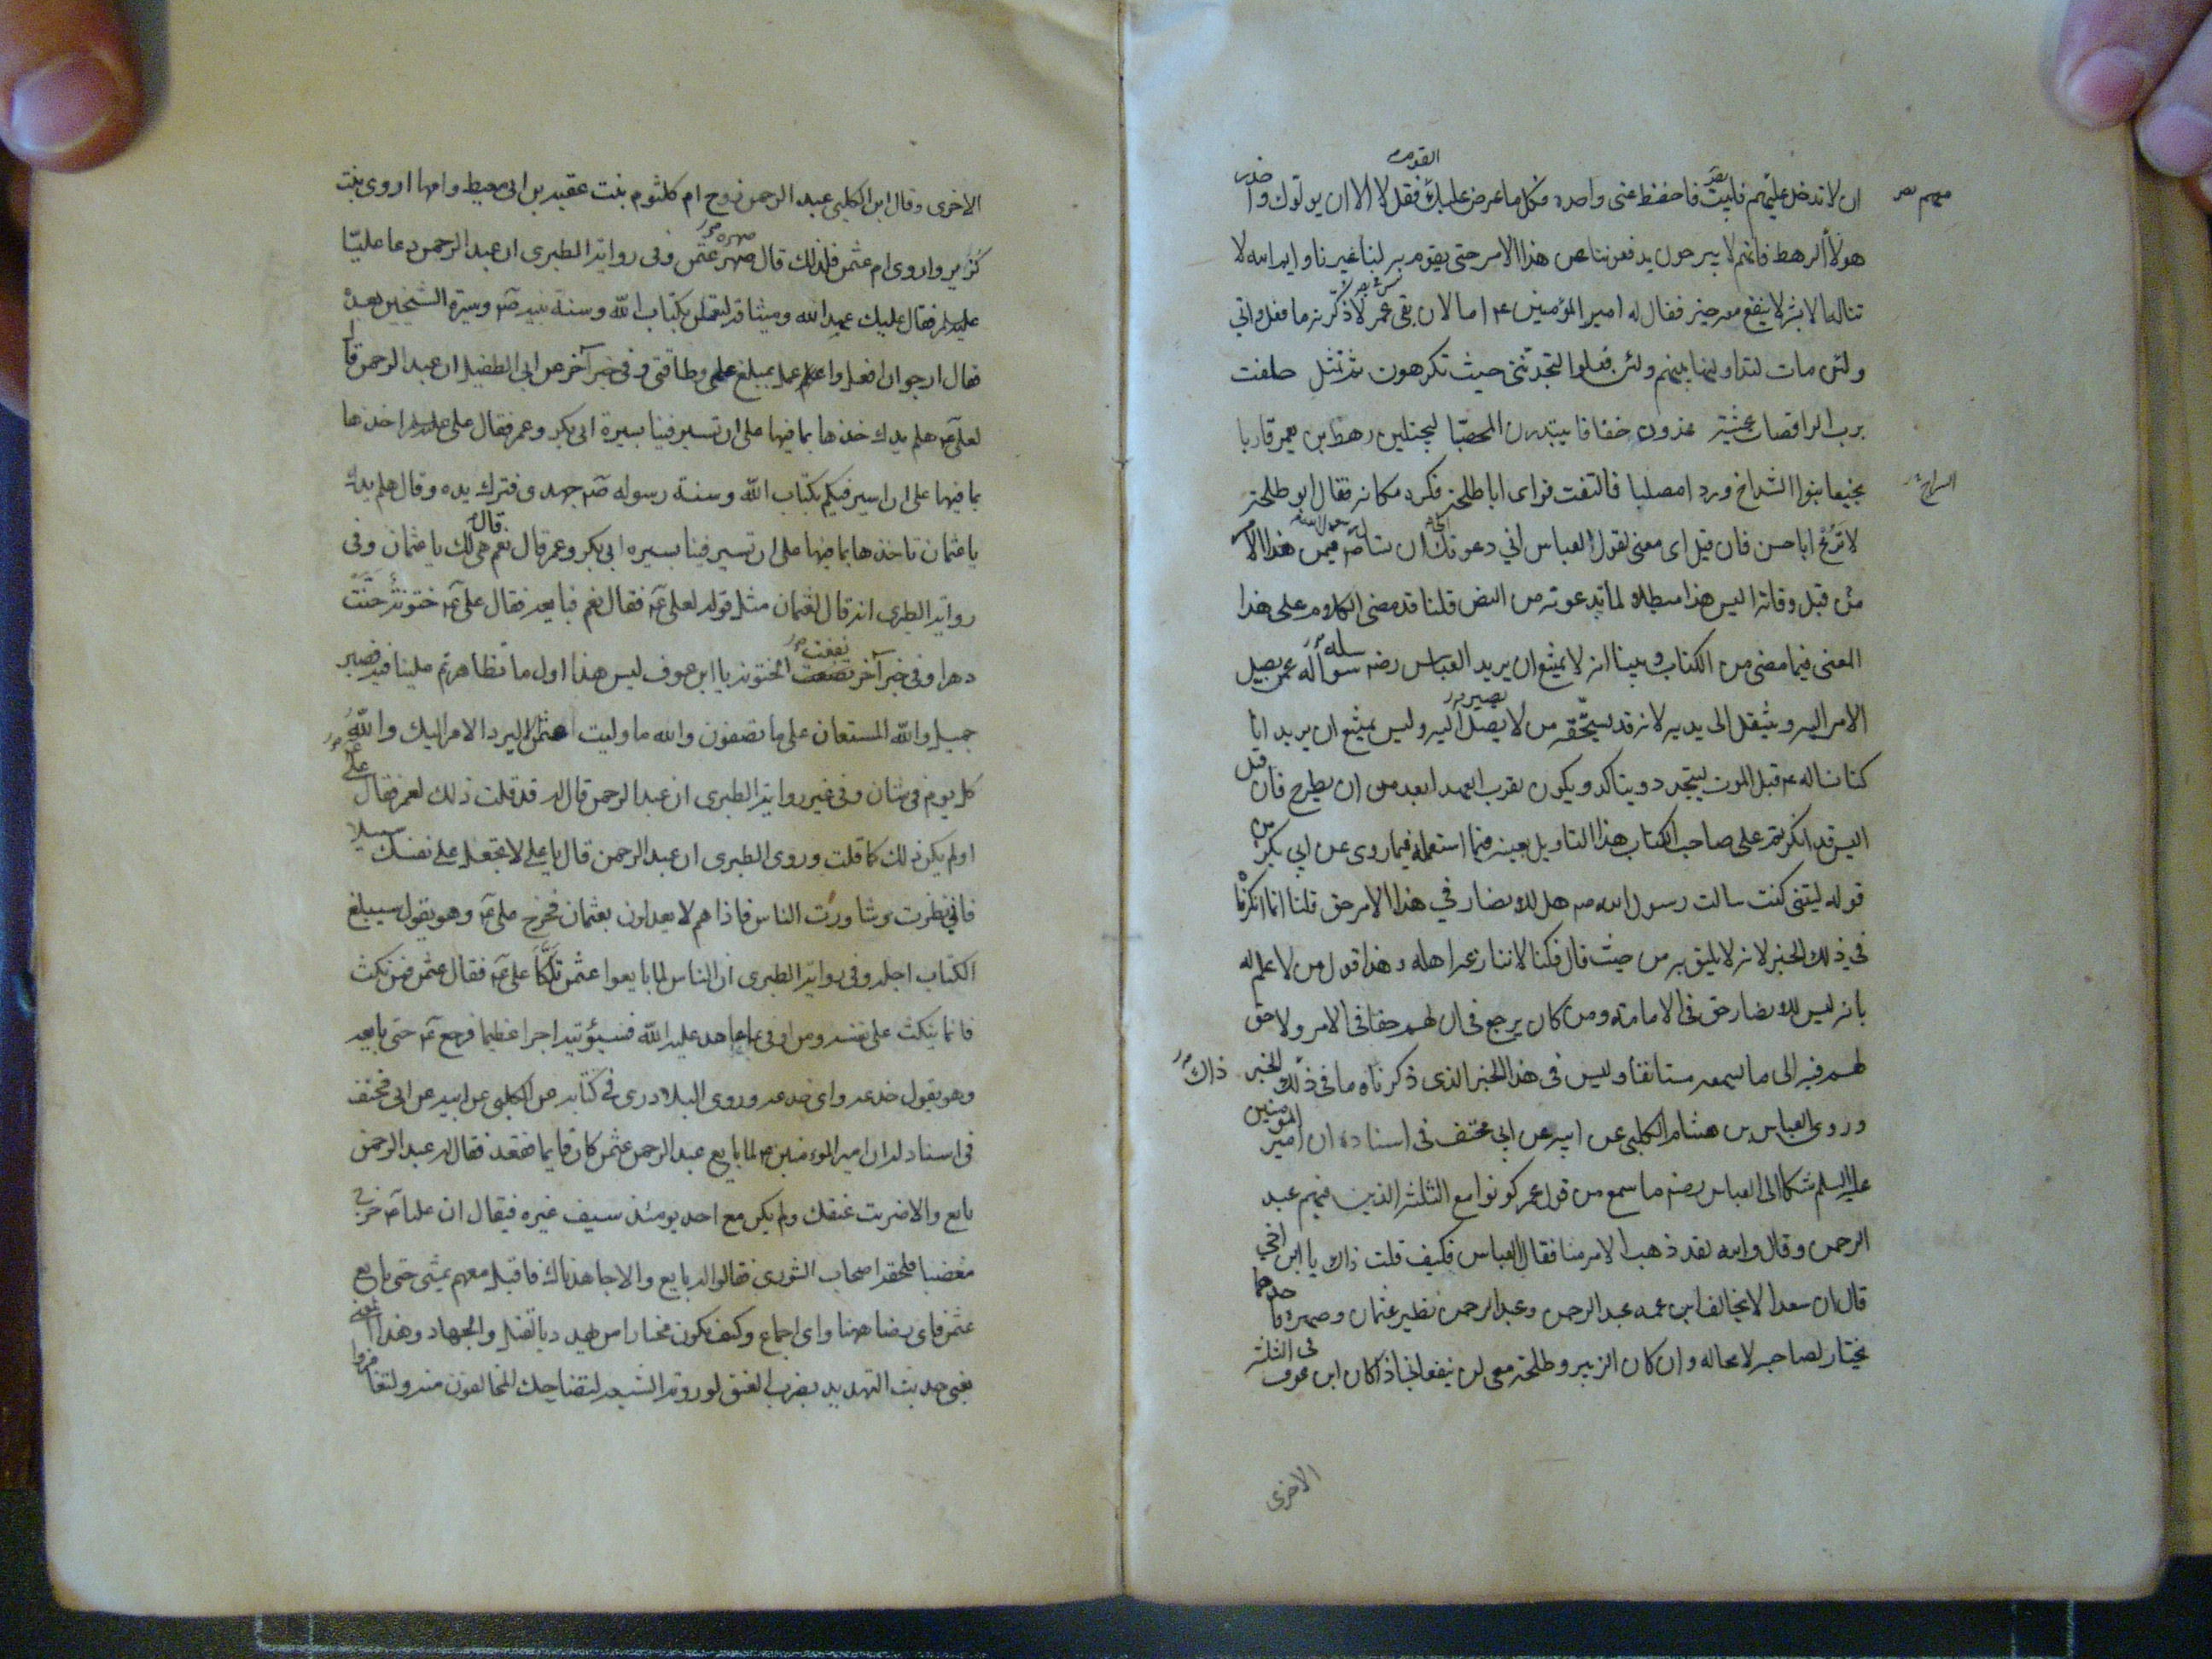 ان لا تدخل عليهم فابيت فاحفظ عنى واحده فكل ما عرض عليك القوم فقل لا الا ان يولوك واحذر
هولاء الرهط فانهم لا يبرحون يدفعوننا عن هذا الامر حتى يقوم به لنا غيرنا وايم الله لا
تناله الا بشر لا ينفع معه خير فقال له امير المؤمنين ع اما لان بقى عمر لاذكرنه ما فعل واتى
ولئن مات ليتداولنها بينهم ولئن فعلوا لتجدننى حيث تكرهون ثم تمثل حلفت
برب الراقصات عشية غدون خفافا يبتدرن المحصبا ليجتلين رهط بن يعمر قاربا
نجيعا بنوا الشداخ وردا مصلبا فالتفت فراى ابا طلحة فكره مكانه فقال ابو طلحة
لا تُرَعْ ابا حسن فان قيل اى معنى لقول العباس انى دعوتك الى ان تسال رسول الله ص فيمن هذا الامر
من قبل وفاته اليس هذا مبطلا لما تدعونه من النص قلنا قد مضى الكلام على هذا
المعنى فيما مضى من الكتاب وبينا انه لا يمتنع ان يريد العباس رضه سواله عمن يصل
الامر اليه وينتقل الى يديه لانه قد يستحقه من لا يصل اليه وليس يمتنع ان يريد انا
كنا سالناه قبل الموت ليتجدد ويتاكد ويكون لقرب العهد ابعد من ان يطرح فان قيل
اليس قد انكرتم على صاحب الكتاب هذا التاويل بعينه فيما استعمله فيما روى عن ابى بكر من
قوله ليتنى كنت سالت رسول الله ص هل للانصار في هذا الامر حق قلنا انما انكرنا
في ذلك الخبر لانه لا يليق به من حيث قال فكنا لا ننازعه اهله وهذا قول من لا علم له
بانه ليس للانصار حق فى الامامة ومن كان يرجع فى ان لهم حقا فى الامر ولا حق
لهم فيه الى ما يسمعه مستانفا وليس فى هذا الخبر الذى ذكرناه ما فى ذلك الخبر
وروى العباس بن هشام الكلبى عن ابيه عن ابى مخنف فى اسناده ان امير المؤمنين
عليه السلم شكا الى العباس رضه ما سمع من قول عمر كونوا مع الثلثة الذين فيهم عبد
الرحمن وقال والله لقد ذهب الامر منا فقال العباس فكيف قلت ذاك يا ابن اخي
قال ان سعدا لا يخالف ابن عمه عبد الرحمن وعبد الرحمن نظير عثمان وصهره فاحدهما
يختار لصاحبه لا محاله وان كان الزبير وطلحة معى لن ينفعانى اذا كان ابن عوف فى الثلثة
الاخرى
الاخرى وقال ابن الكلبى عبد الرحمن زوج ام كلثوم بنت عقبه بن ابى معيط وامها اروى بنت
كريز واروى ام عثمن فلذلك قال صهره عثمن وفى رواية الطبرى ان عبد الرحمن دعا عليّا
عليه السلم فقال عليك عهد الله وميثاقه لتعملن بكتاب الله وسنة نبيه ص وسيرة الشيخين بعده
فقال ارجوا ان افعل واعمل بمبلغ علمى وطاقتى وفى خبر آخر عن ابى الطفيل ان عبد الرحمن قال
لعلى ع هلم يدك خذها بما فيها على ان تسير فينا بسيرة ابى بكر وعمر فقال على عليه السلم اخذها
بما فيها على ان اسير فيكم بكتاب الله وسنة رسوله ص جهدى فترك يده وقال هلم يدك
يا عثمان تاخذها بما فيها على ان تسير فينا بسيره ابى بكر وعمر قال نعم قال هى لك يا عثمان وفى
رواية الطبرى انه قال لعثمان مثل قوله لعلى ع فقال نعم فبايعه فقال على ع ختونة حَنَّتْ
دهرا وفى خبر آخر نفعت الختونة يا ابن عوف ليس هذا اول ما تظاهرتم علينا فيه فصبر
جميل والله المستعان على ما تصفون والله ما وليت عثمن الا ليرد الامر اليك والله
كل يوم فى شان وفى غير رواية الطبرى ان عبد الرحمن قال له قد قلت ذلك لعمر فقال على ع
اولم يكن ذلك كما قلت وروى الطبرى ان عبد الرحمن قال يا على لا تجعل على نفسك سبيلا
فانى نظرت وشاورت الناس فاذا هم لا يعدلون بعثمان فخرج على ع وهو يقول سيبلغ
الكتاب اجله وفى رواية الطبرى ان الناس لما بايعوا عثمن تلكّأ على ع فقال عثمن فمن نكث
فانما ينكث على نفسه ومن اوفى بما عاهد عليه الله فسيؤتيه اجرا عظيما فرجع ع حتى بايعه
وهو يقول خدعة واى خدعة وروى البلادرى فى كتابه عن الكلبى عن ابيه عن ابى مخنف
فى اسناد له ان امير المومنين ع لما بايع عبد الرحمن عثمن كان قايما فقعد فقال له عبد الرحمن
بايع والا ضربت عنقك ولم يكن مع احد يومئذ سيف غيره فيقال ان عليا ع خرج
مغضبا فلحقه اصحاب الشورى فقالوا له بايع والا جاهدناك فاقبل معهم يمشى حتى بايع
عثمن فاى رضا هيهنا واى اجماع وكيف يكون مختارا من تهدد بالقتل والجهاد وهذا المعنى
يعنى حديث التهديد بضرب العنق لو روته الشيعة لتضاحك المخالفون منه ولتغامزوا